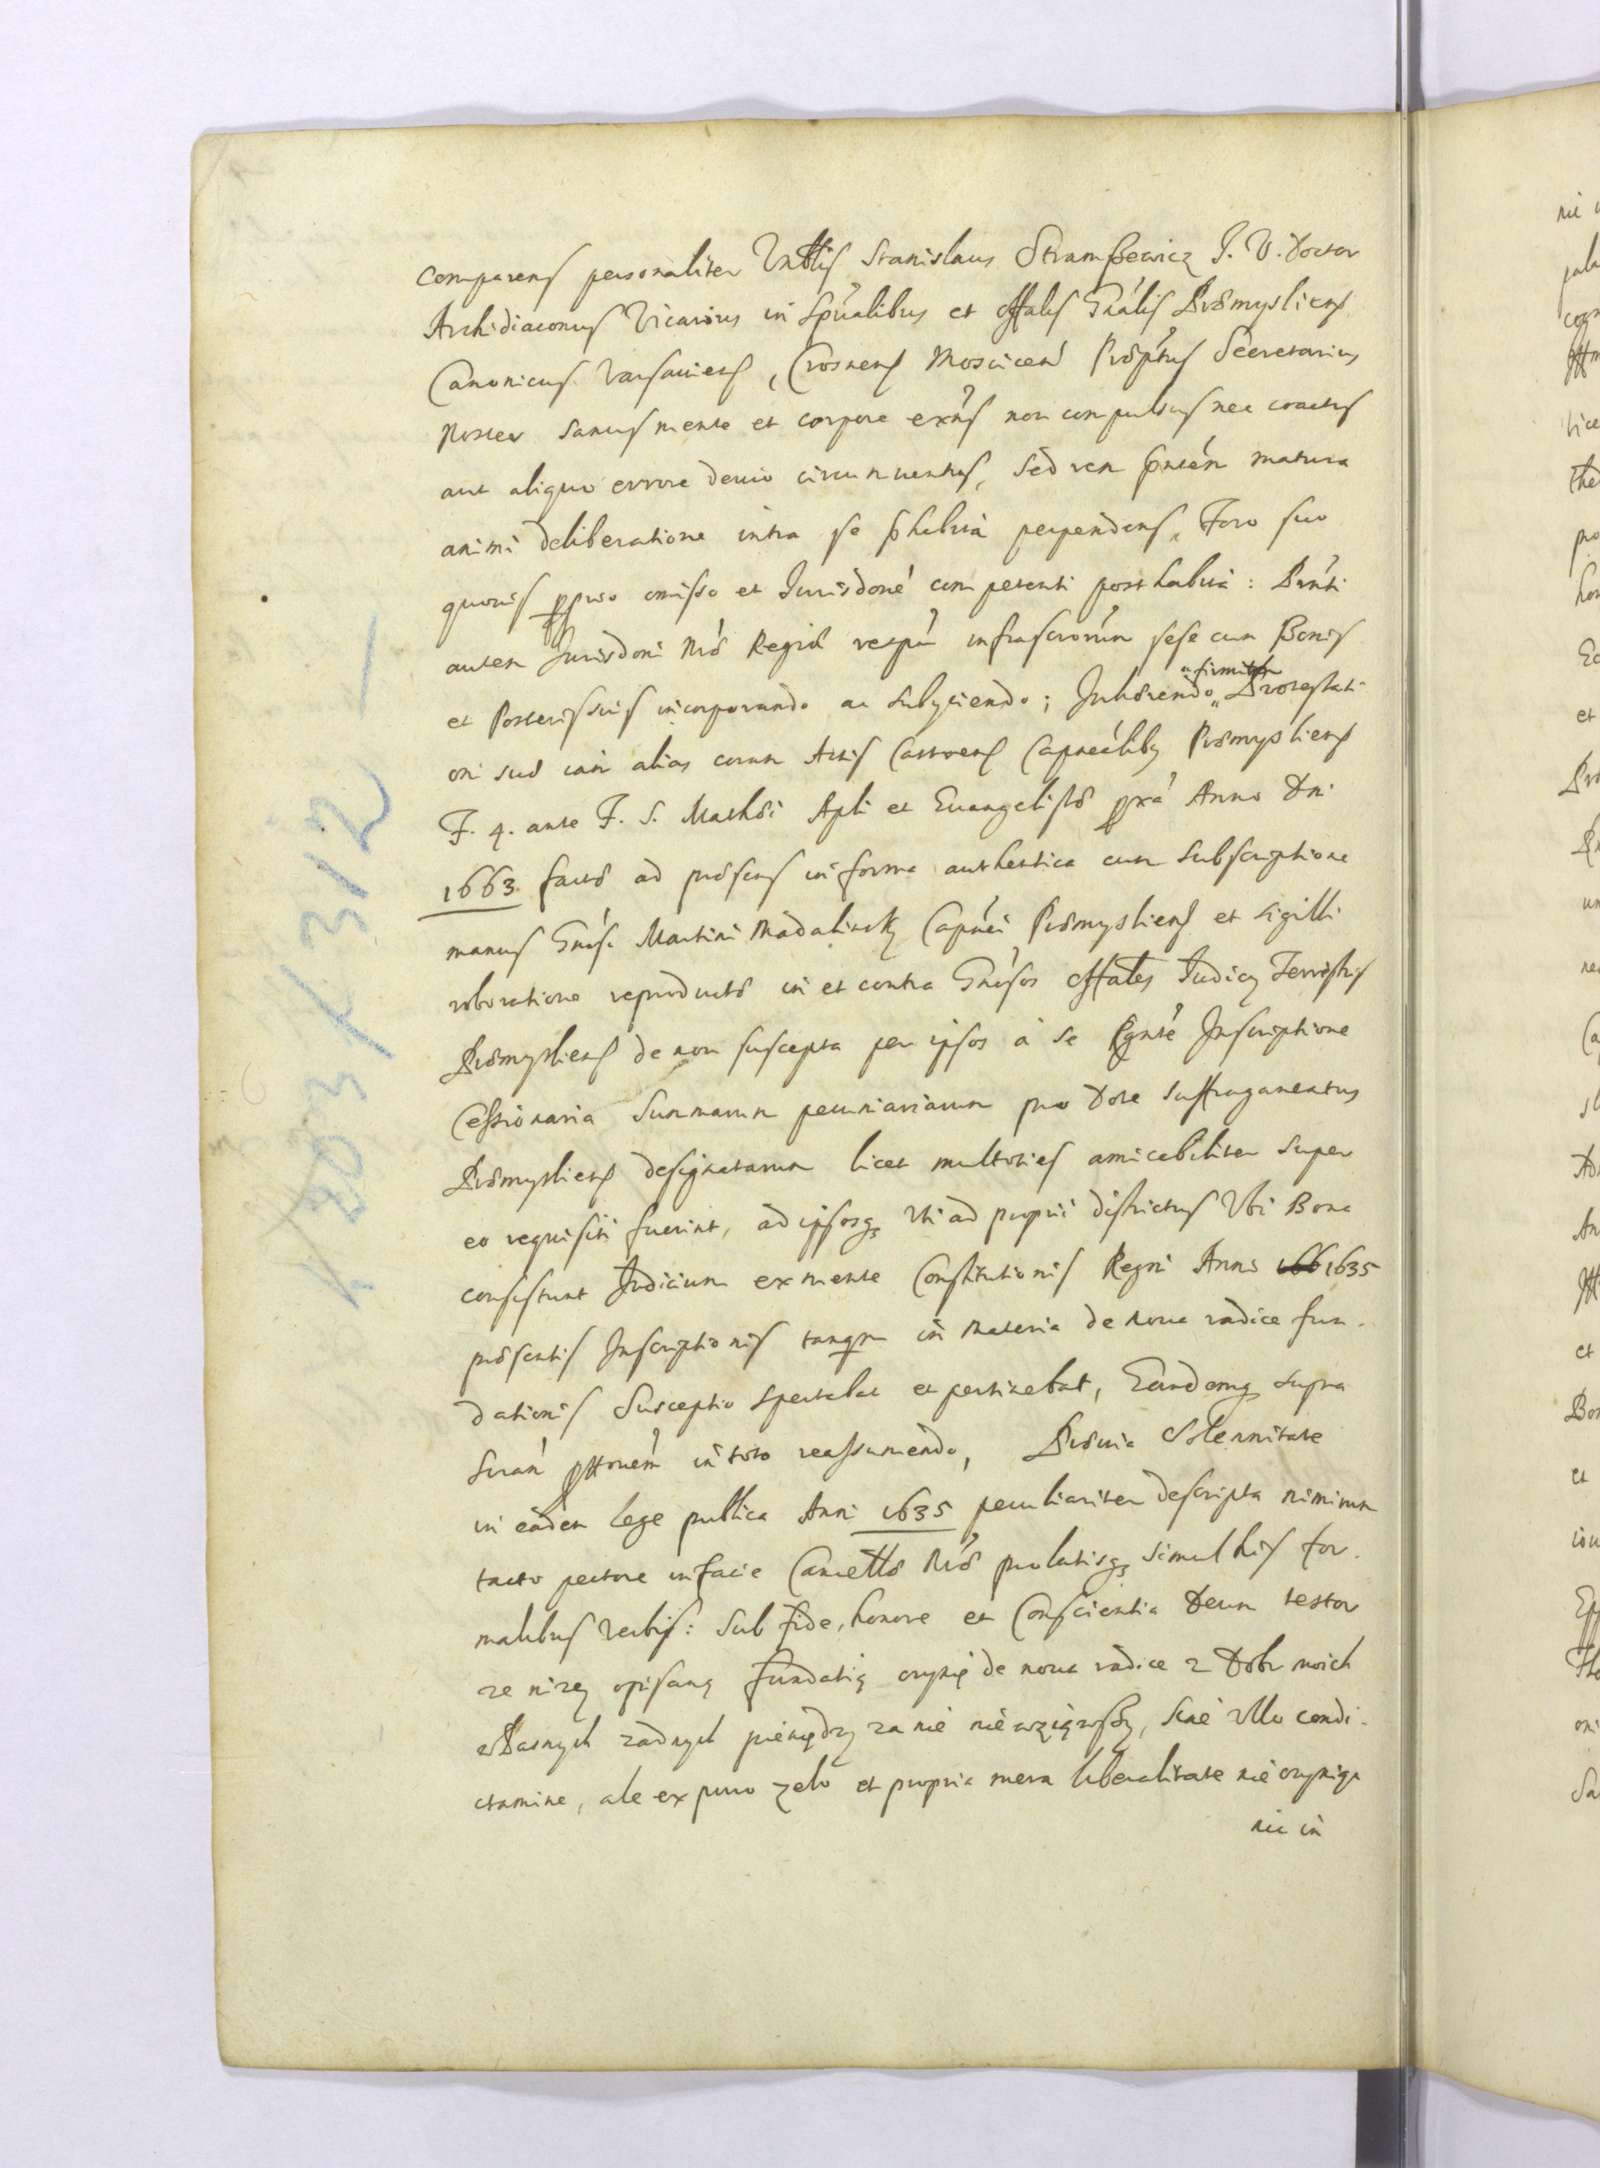 comparens personaliter Vnblis Stanislaus Strumszewicz J. V. Doctor
Archidiaconus Vicarius in Spũalibus et Offalis Gnãlis Præmysliens
Canonicus Varsauiens, Crosnens Mosticen Præptus Secretarius
Noster sanus mente et corpore exns non compulsus nec coactus
aut aliquo errore deuio circumuentus, sed rem pntem matura
animi deliberatione intra se habita perpendens, Foro suo
quouis pprio omisso et Jurisdone competenti posthabita: Pnti
autem Jurisdoni Nræ Regiæ respu infrascrorum sese cum Bonis
et Posteris suis incorporando ac subyciendo; Inhærendo firmiter Protestati-
oni suæ iam alias coram Actis Castrens Capnealibq Præmysliens
F. 4. ante F. S. Mathæi Apli et Euangelistæ pxa Anno Dni
1663 factæ ad præsens in forma authentica cum subscriptione
manus Gnsi Martini Madalinsky Capnei Præmysliens et sigilli
roboratione reproductæ in et contra Gnsos Offales Judicy Terrestris
Præmysliens de non suscepta per ipsos à se Inscriptione
Cessionaria Summarum pecuniariarum pro Dote Suffraganeatus
Præmysliens designatarum licet multoties amicabiliter super
eo requisiti fuerint, ad ipsosq vti ad proprii districtus Vbi Bona
consistunt Judicium ex mente Constitutionis Regni Anni 166 1635
præsentis Inscriptionis tanqm in materia de noua radice fun-
dationis Susceptio spectabat et pertinebat, Eandemq supra
scran pttonem in toto reassumendo, Præuia Solennitate
in eadem lege publica Anni 1635 peculiariter descripta nimirum
tacto pectore in facie Cancellæ Nræ prolatisq simul his for-
malibus verbis: Sub fide, honore et Conscientia Deum testor
ze nizey opisaną fundatią czynię de noua radice z Dobr moich
własnych zadnych pieniędzy za nie nie wziąwszy, sine vllo condi-
ctamine, ale ex puro zelo et propria mera liberalitate nie czyniąc
nic in